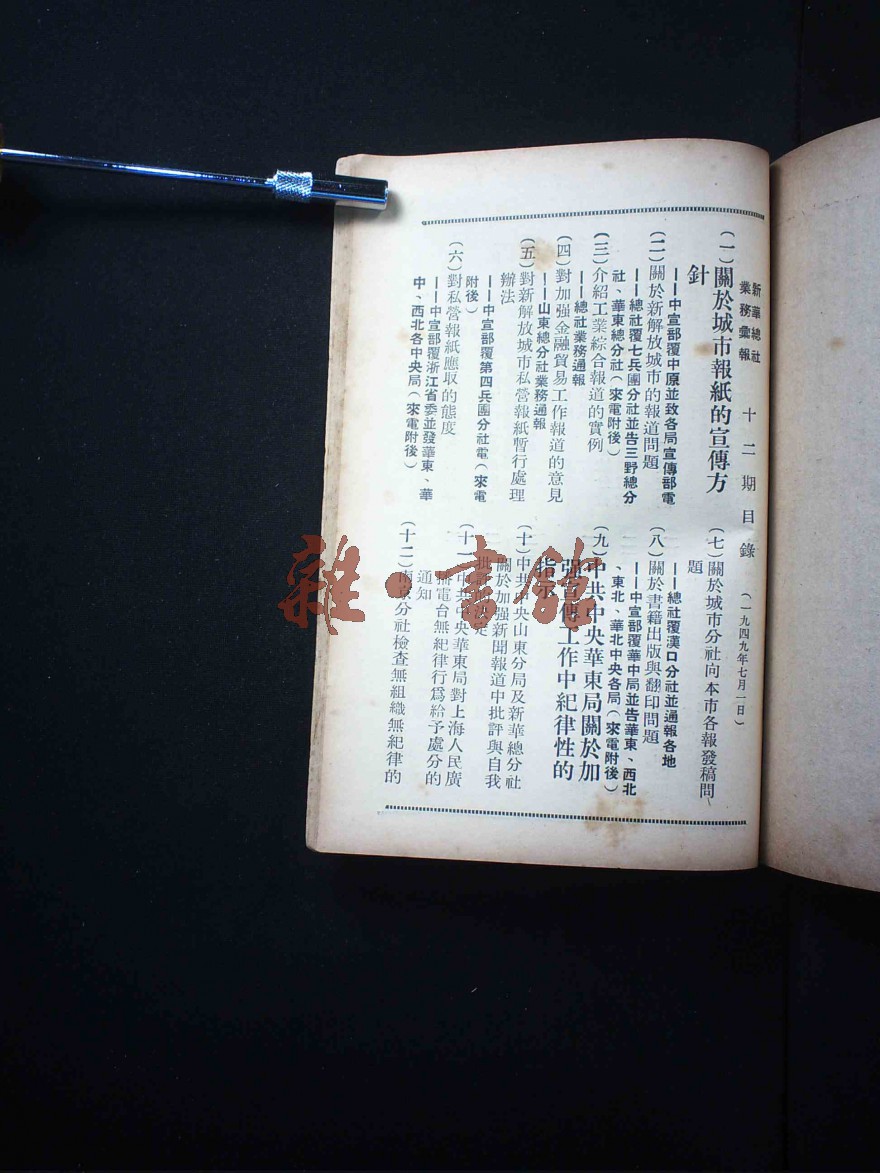 新華總社
業務彙報
十二期目錄
(一九四九年七月一日)
(一)關於城市報紙的宣傳方
針
——中宣部覆中原並致各局宣傳部電
(二)關於新解放城市的報道問題
——總社覆七兵團分社並告三野總分
社、華東總分社(來電附後)
(三)介紹工業綜合報道的實例
——總社業務通報
(四)對加强金融貿易工作報道的意見
——山東總分社業務通報
(五)對新解放城市私營報紙暫行處理
辦法
——中宣部覆第四兵團分社電(來電
附後)
(六)對私營報紙應取的態度
——中宣部覆浙江省委並發華東、華
中、西北各中央局(來電附後)
(七)關於城市分社向本市各報發稿問
題
——總社覆漢口分社並通報各地
(八)關於書籍出版與翻印問題
——中宣部覆華中局並告華東、西北
、東北、華北中央各局(來電附後)
(九)中共中央華東局關於加
强宣傳工作中紀律性的
指示
(十)中共中央山東分局及新華總分社
關於加强新聞報道中批評與自我
批評的決定
(十一)中共中央華東局對上海人民廣
播電台無紀律行爲給予處分的
通知
(十二)南京分社檢查無組織無紀律的
雜·書館